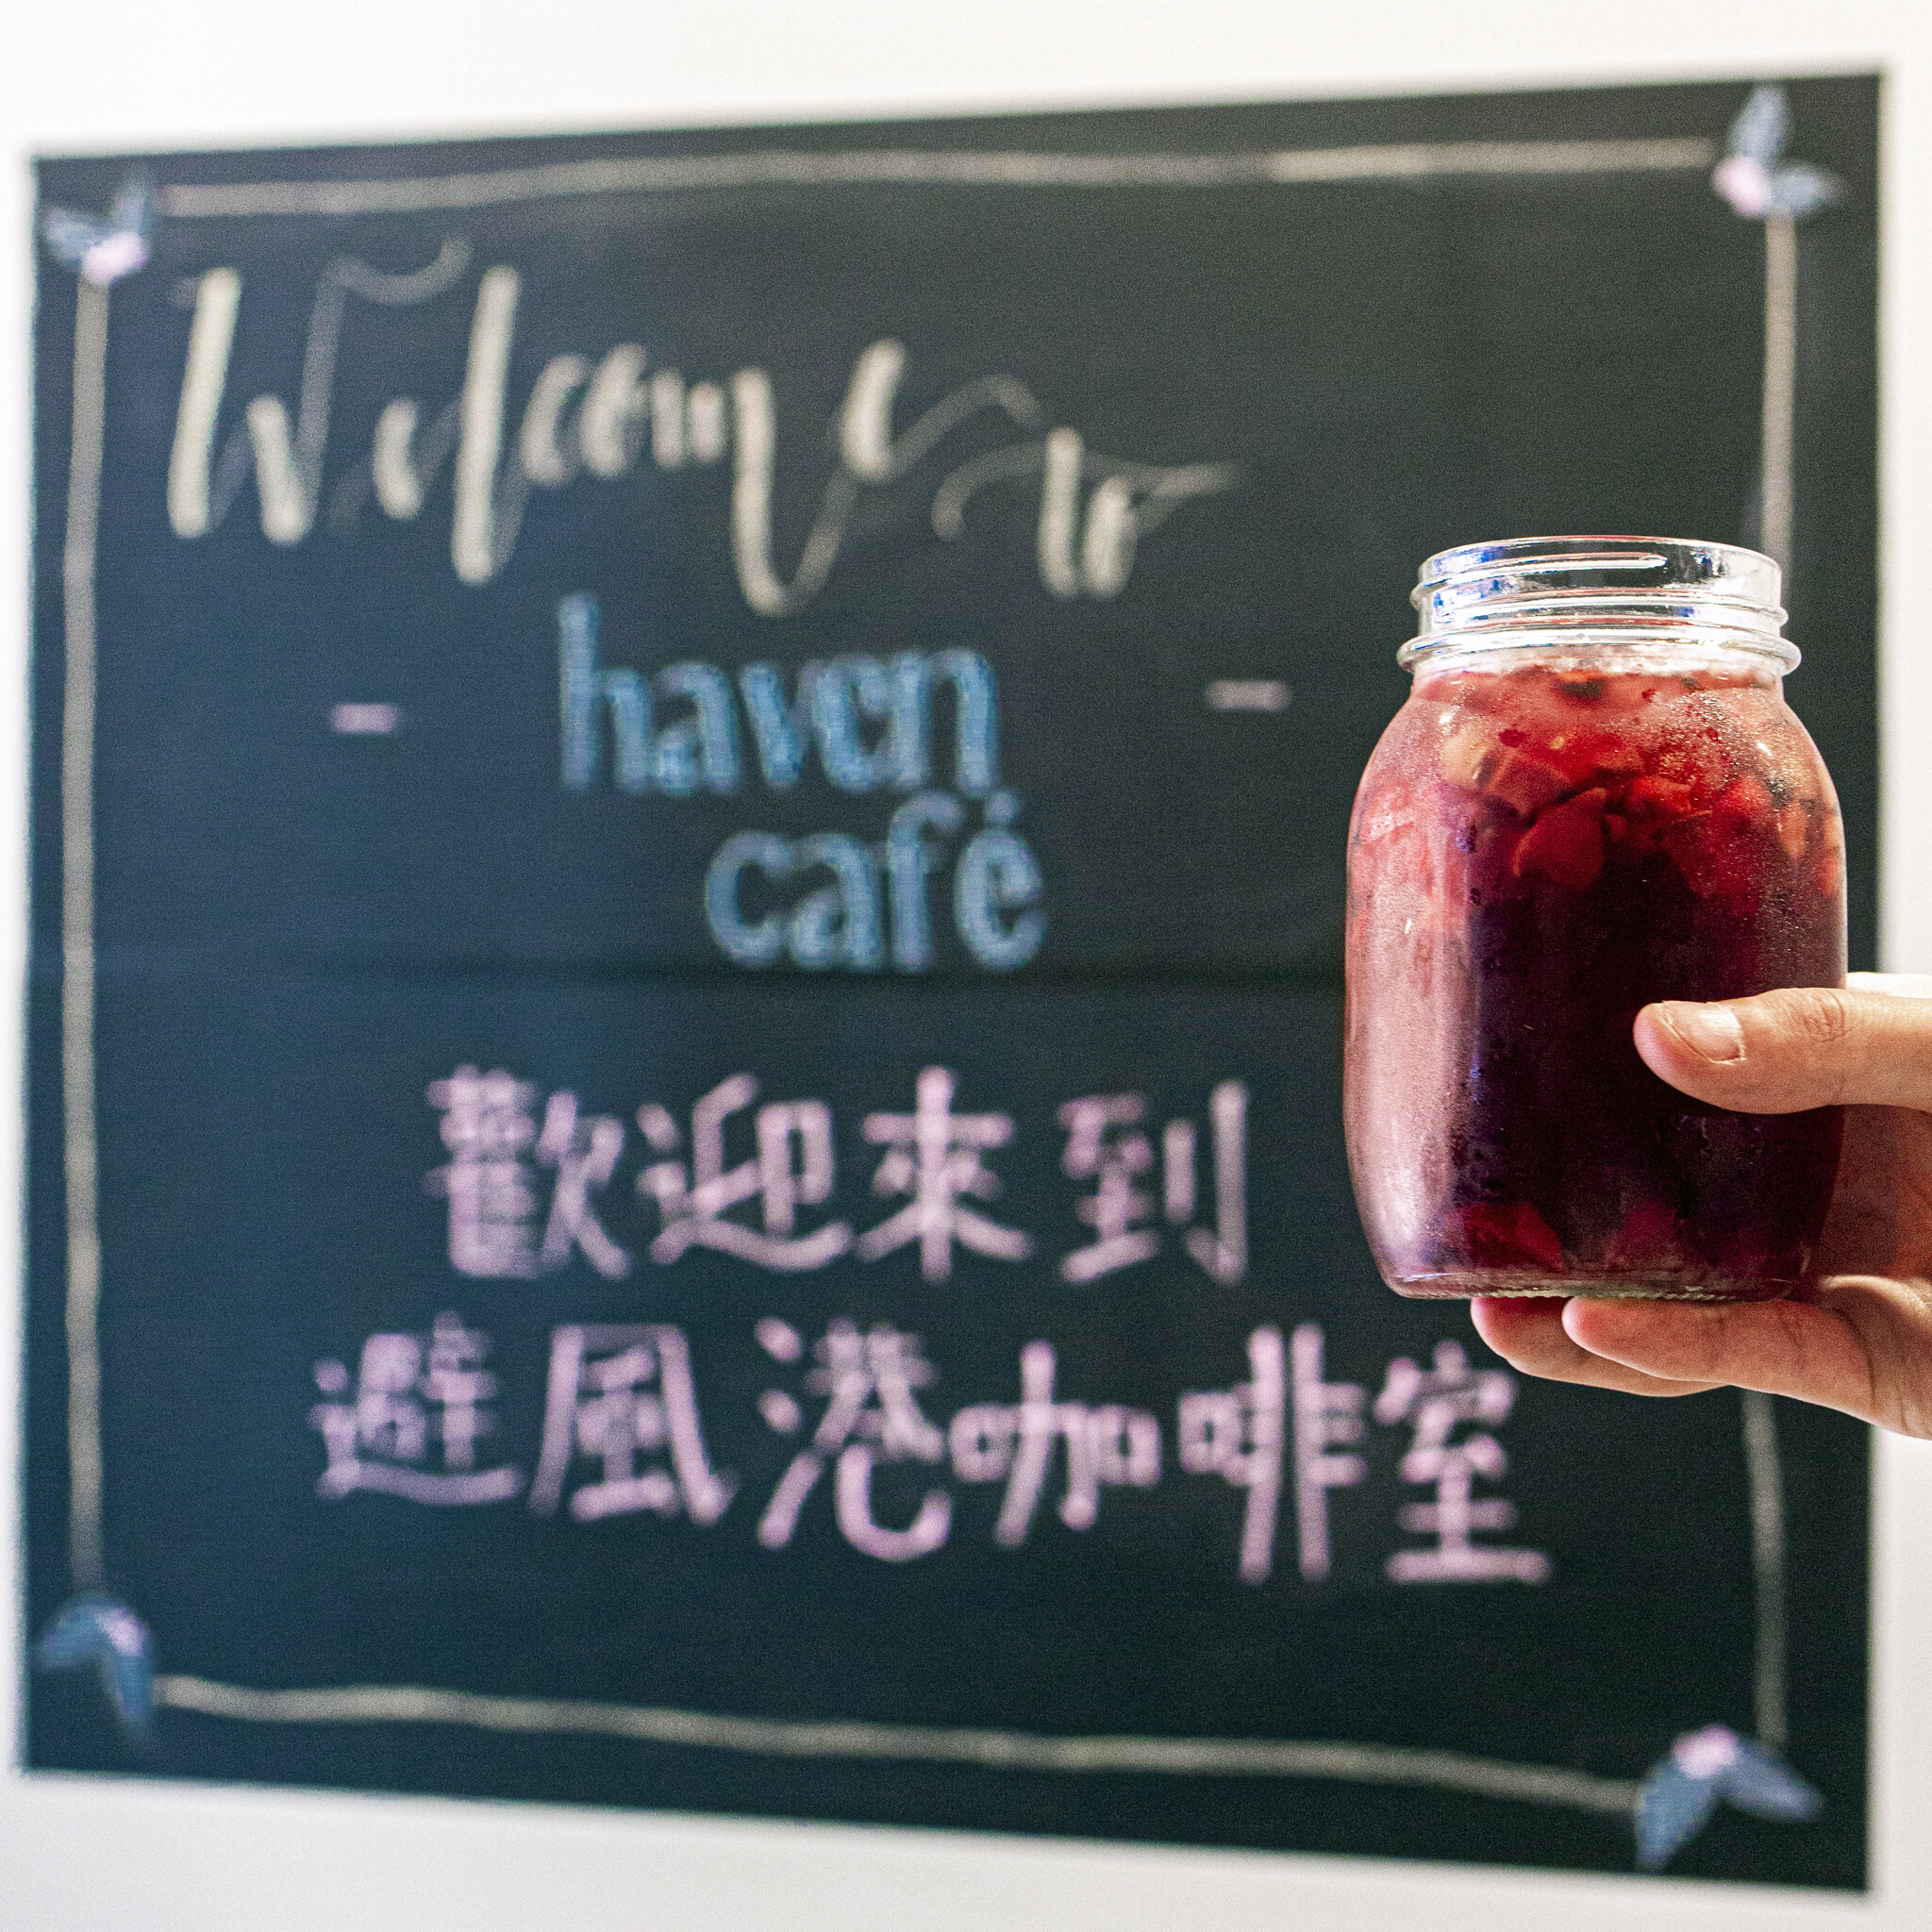 Welcome to
haven
café
歡迎來到
避風港咖啡室